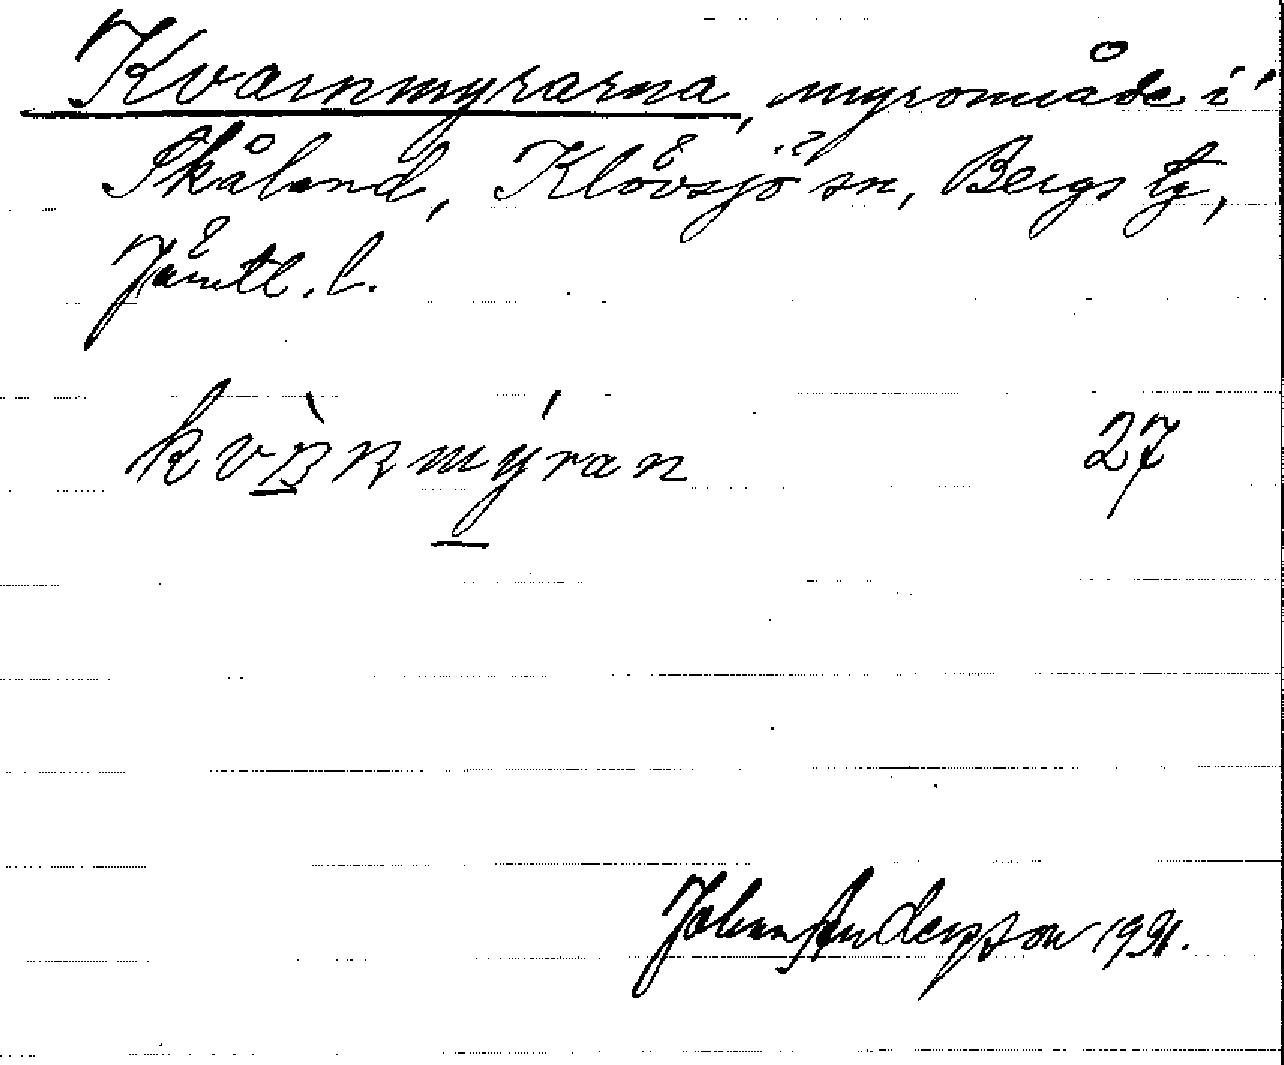 Kvarnmyrarna, myrområde i
Skåland, Klövsjö sn, Bergs tg,
Jämtl. l.
27
Johan Andersson 1931.